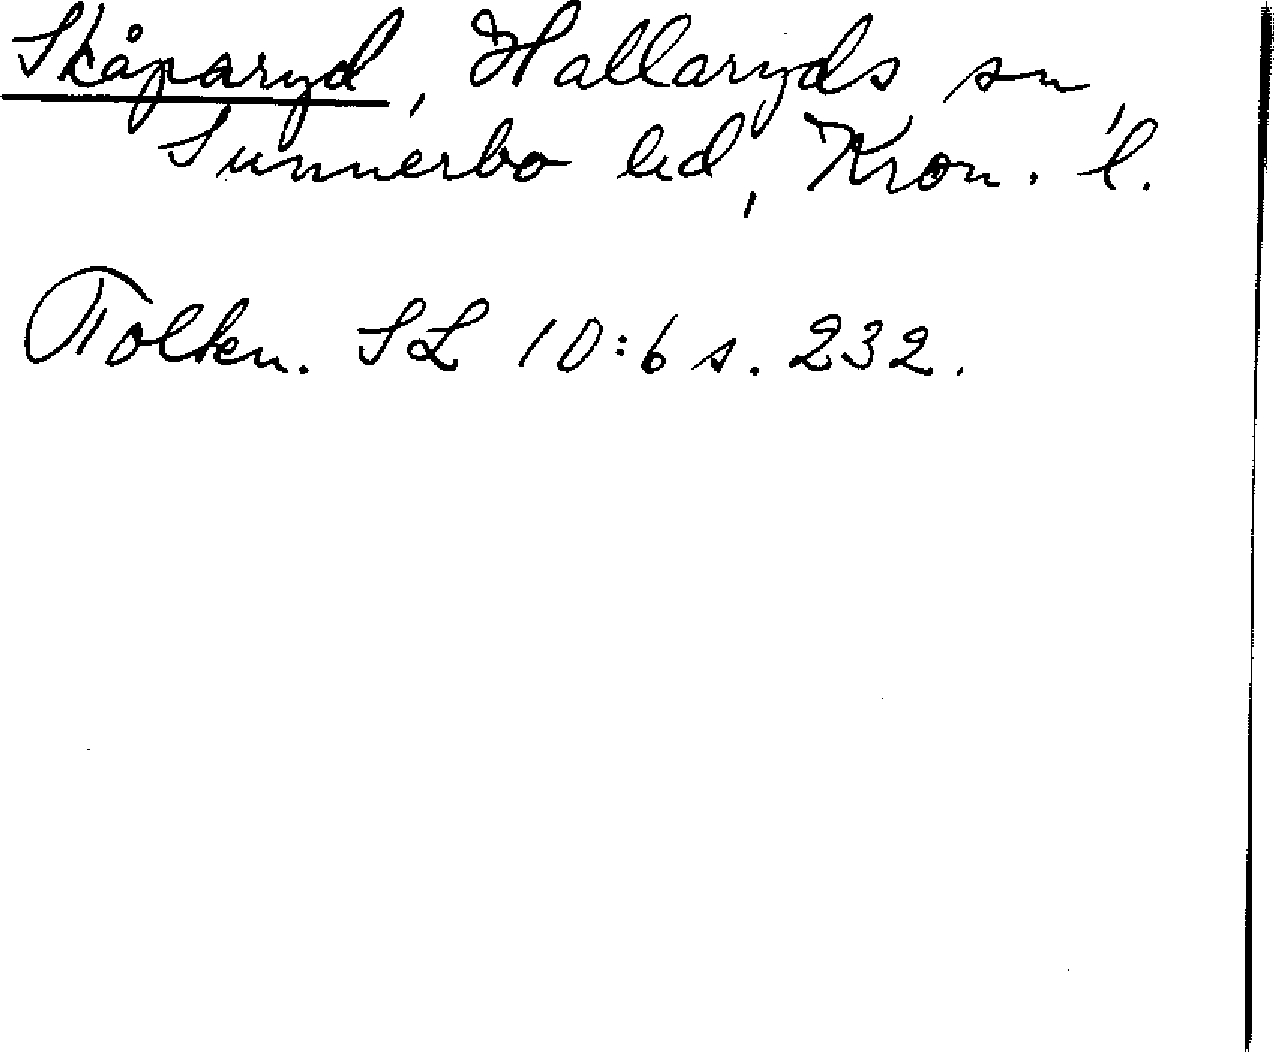 Skåparyd, Hallaryds sn,
Sunnerbo hd, Kron. l.
Tolkn. SL 10:6 s. 232.